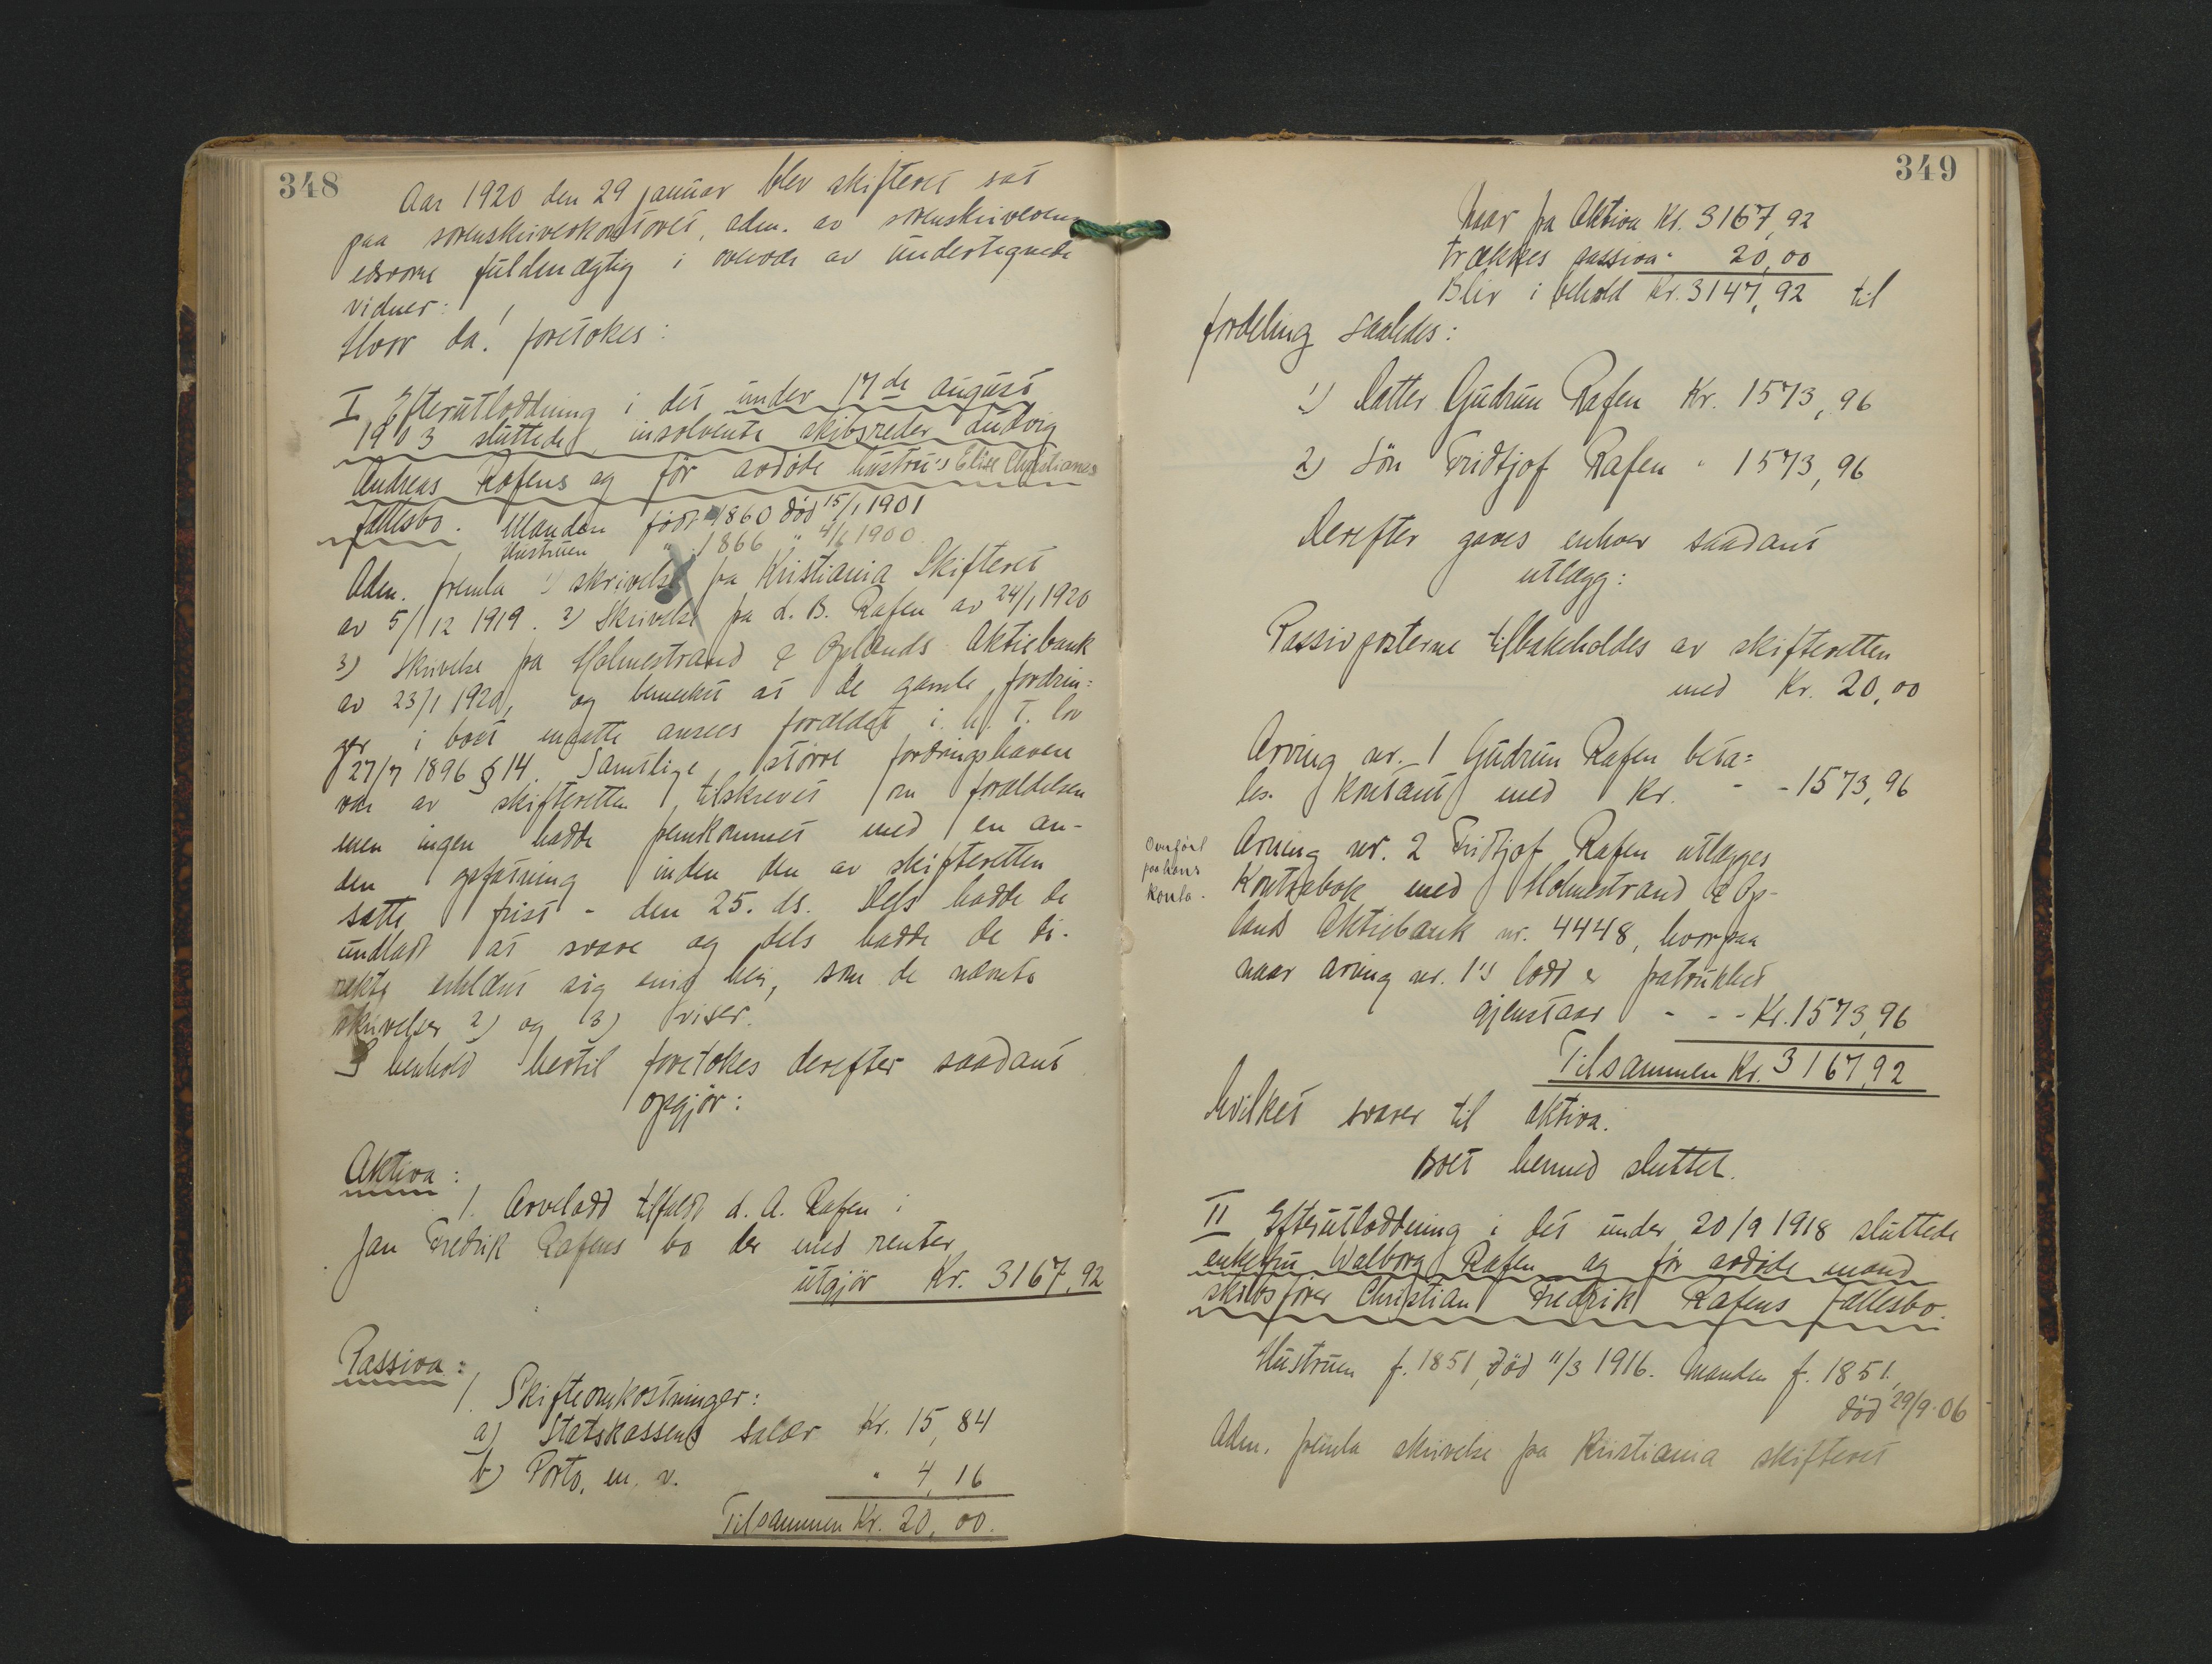 348
Aar 1920 den 29 januar blev skifteret sat
paa sorenskriverkontoret, adm. av sorenskriverens
edsvorne fuldmægtig i overvær av undertegnede
vidner:
Hvor da! foretokes:
I Efterutloddning i det under 17de august
1903 sluttede, insolvente skibsreder Ludvig
Andreas Rafens og før avdøde hustru's Elise Christianes
fællesbo. Manden født 1860 død 15/1 1901
Hustruen " 1866 " 4/6 1900.
Adm. fremla 1) skrivelse fra Kristiania Skifteret
av 5/12 1919. 2) Skrivelse fra L. B. Rafen av 24/1 1920
3) Skrivelse fra Holmestrand & Oplands Aktiebank
av 23/1 1920, og bemerket at de gamle fordrin=
ger i boet maatte ansees forældet i h. t. lov
27/7 1896 § 14. Samtlige større fordringshavere
var av skifteretten tilskrevet om forældelsen
men ingen hadde fremkommet med en an-
den opfatning inden den av skifteretten
satte frist - den 25. ds. Dels hadde de
undlatt at svare og dels hadde de di-
rekte erklært sig enig heri, som de nævnte
skrivelser 2) og 3) viser.
I henhold hertil foretokes derefter saadant
opgjør:
Aktiva:
1. Arvelodd tilfaldt L. A. Rafen i
Jan Fredrik Rafens bo der med renter
utgjør Kr. 3167,92
Passiva:
1. Skifteomkostninger:
a) Statskassens salær Kr. 15,84
b) Porto, m. v. " 4,16
Tilsammen Kr. 20,00.
349
Naar fra Aktiva Kr. 3167,92
trækkes passiva " 20,00
Blir i behold Kr. 3147,92 til
fordeling saaledes:
1) Datter Gudrun Rafen Kr. 1573,96
2) Søn Fridtjof Rafen " 1573,96
Derefter gaves enhver saadant
utlægg:
Passivposterne tilbakeholdes av skifteretten
med Kr. 20,00
Arving nr. 1 Gudrun Rafen beta=
les kontant med Kr. - - 1573,96
Overført
paa hans
konto.
Arving nr. 2 Fridtjof Rafen utlægges
Kontrabok med Holmestrand & Op-
lands Aktiebank nr. 4448, hvorpaa
naar arving nr. 1's lodd er fratrukket
gjenstaar - - - Kr. 1573,96
Tilsammen Kr. 3167,92
hvilket svarer til aktiva.
Boet hermed sluttet.
II Efterutloddning i det under 20/9 1918 sluttede
enkefru Walborg Rafen og før avdøde mand
skibsfører Christian Fredrik Rafens fællesbo.
Hustruen f. 1851, død 11/3 1916. Manden f. 1851,
død 29/9-06
Adm. fremla skrivelse fra Kristiania skifteret